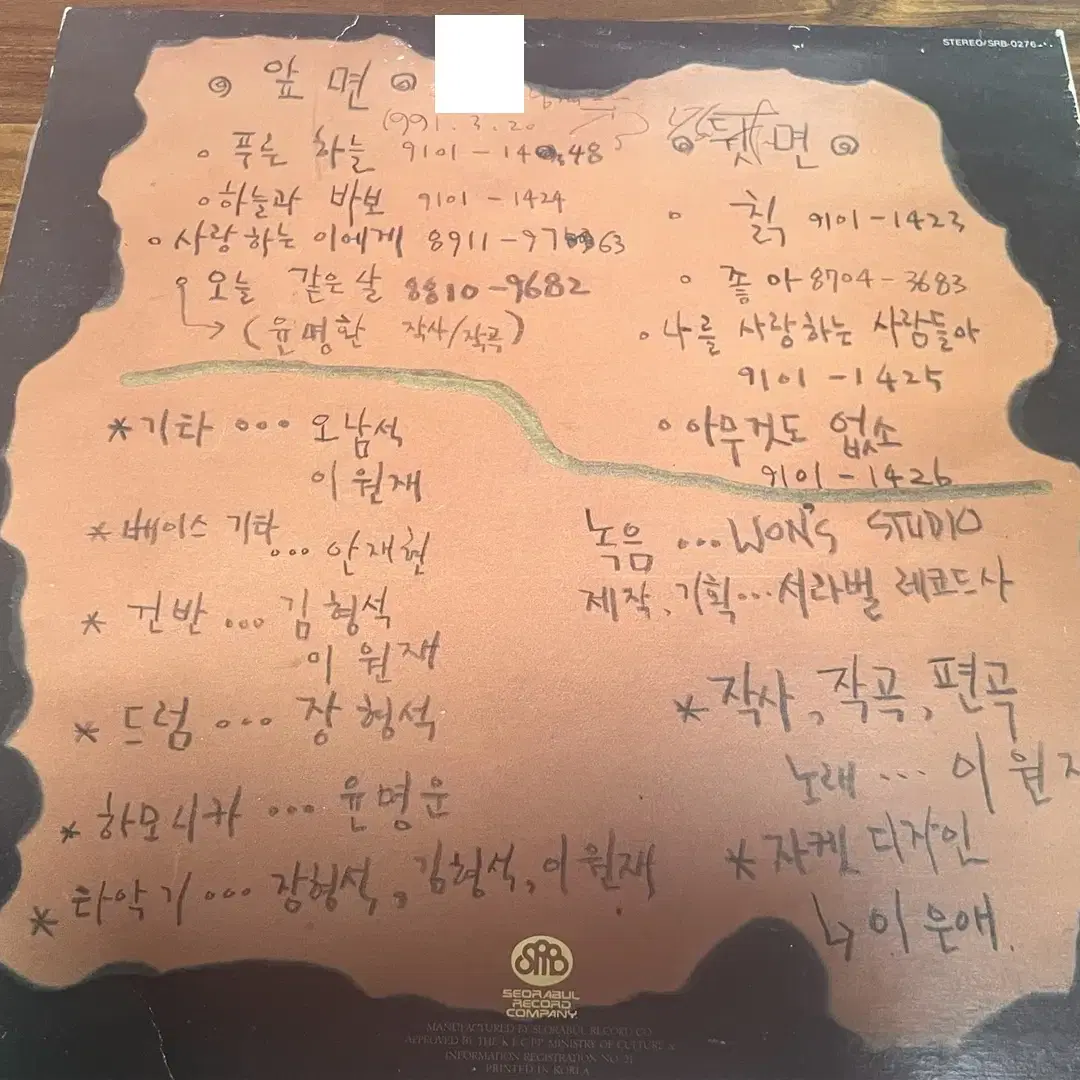 STEREO/SRB-0276
앞 면
1991. 3. 20
푸른 하늘 9101-14 48
하늘과 바보 9101-1424
사랑하는 이에게 8911-97 63
오늘 같은 날 8810-9682
(윤명환 작사/작곡)
뒷면
칡 9101-1423
좋아 8704-3683
나를 사랑하는 사람들아
9101-1425
아무것도 없소
9101-1426
*기타 ... 오남석
이원재
*베이스 기타
... 안재현
* 건반 ... 김형석
이원재
* 드럼 ... 장형석
* 하모니카 ... 윤명운
* 타악기 ... 장형석, 김형석, 이원재
녹음 ... WON'S STUDIO
제작, 기획 ... 서라벌 레코드사
* 작사, 작곡, 편곡
노래 ... 이원
* 자켓 디자인
↳ 이은애.
SRB
SEORABUL
RECORD
COMPANY
MANUFACTURED BY SEORABUL RECORD CO
APPROVED BY THE K.E.C.P.P. MINISTRY OF CULTURE &
INFORMATION REGISTRATION NO. 21
• PRINTED IN KOREA